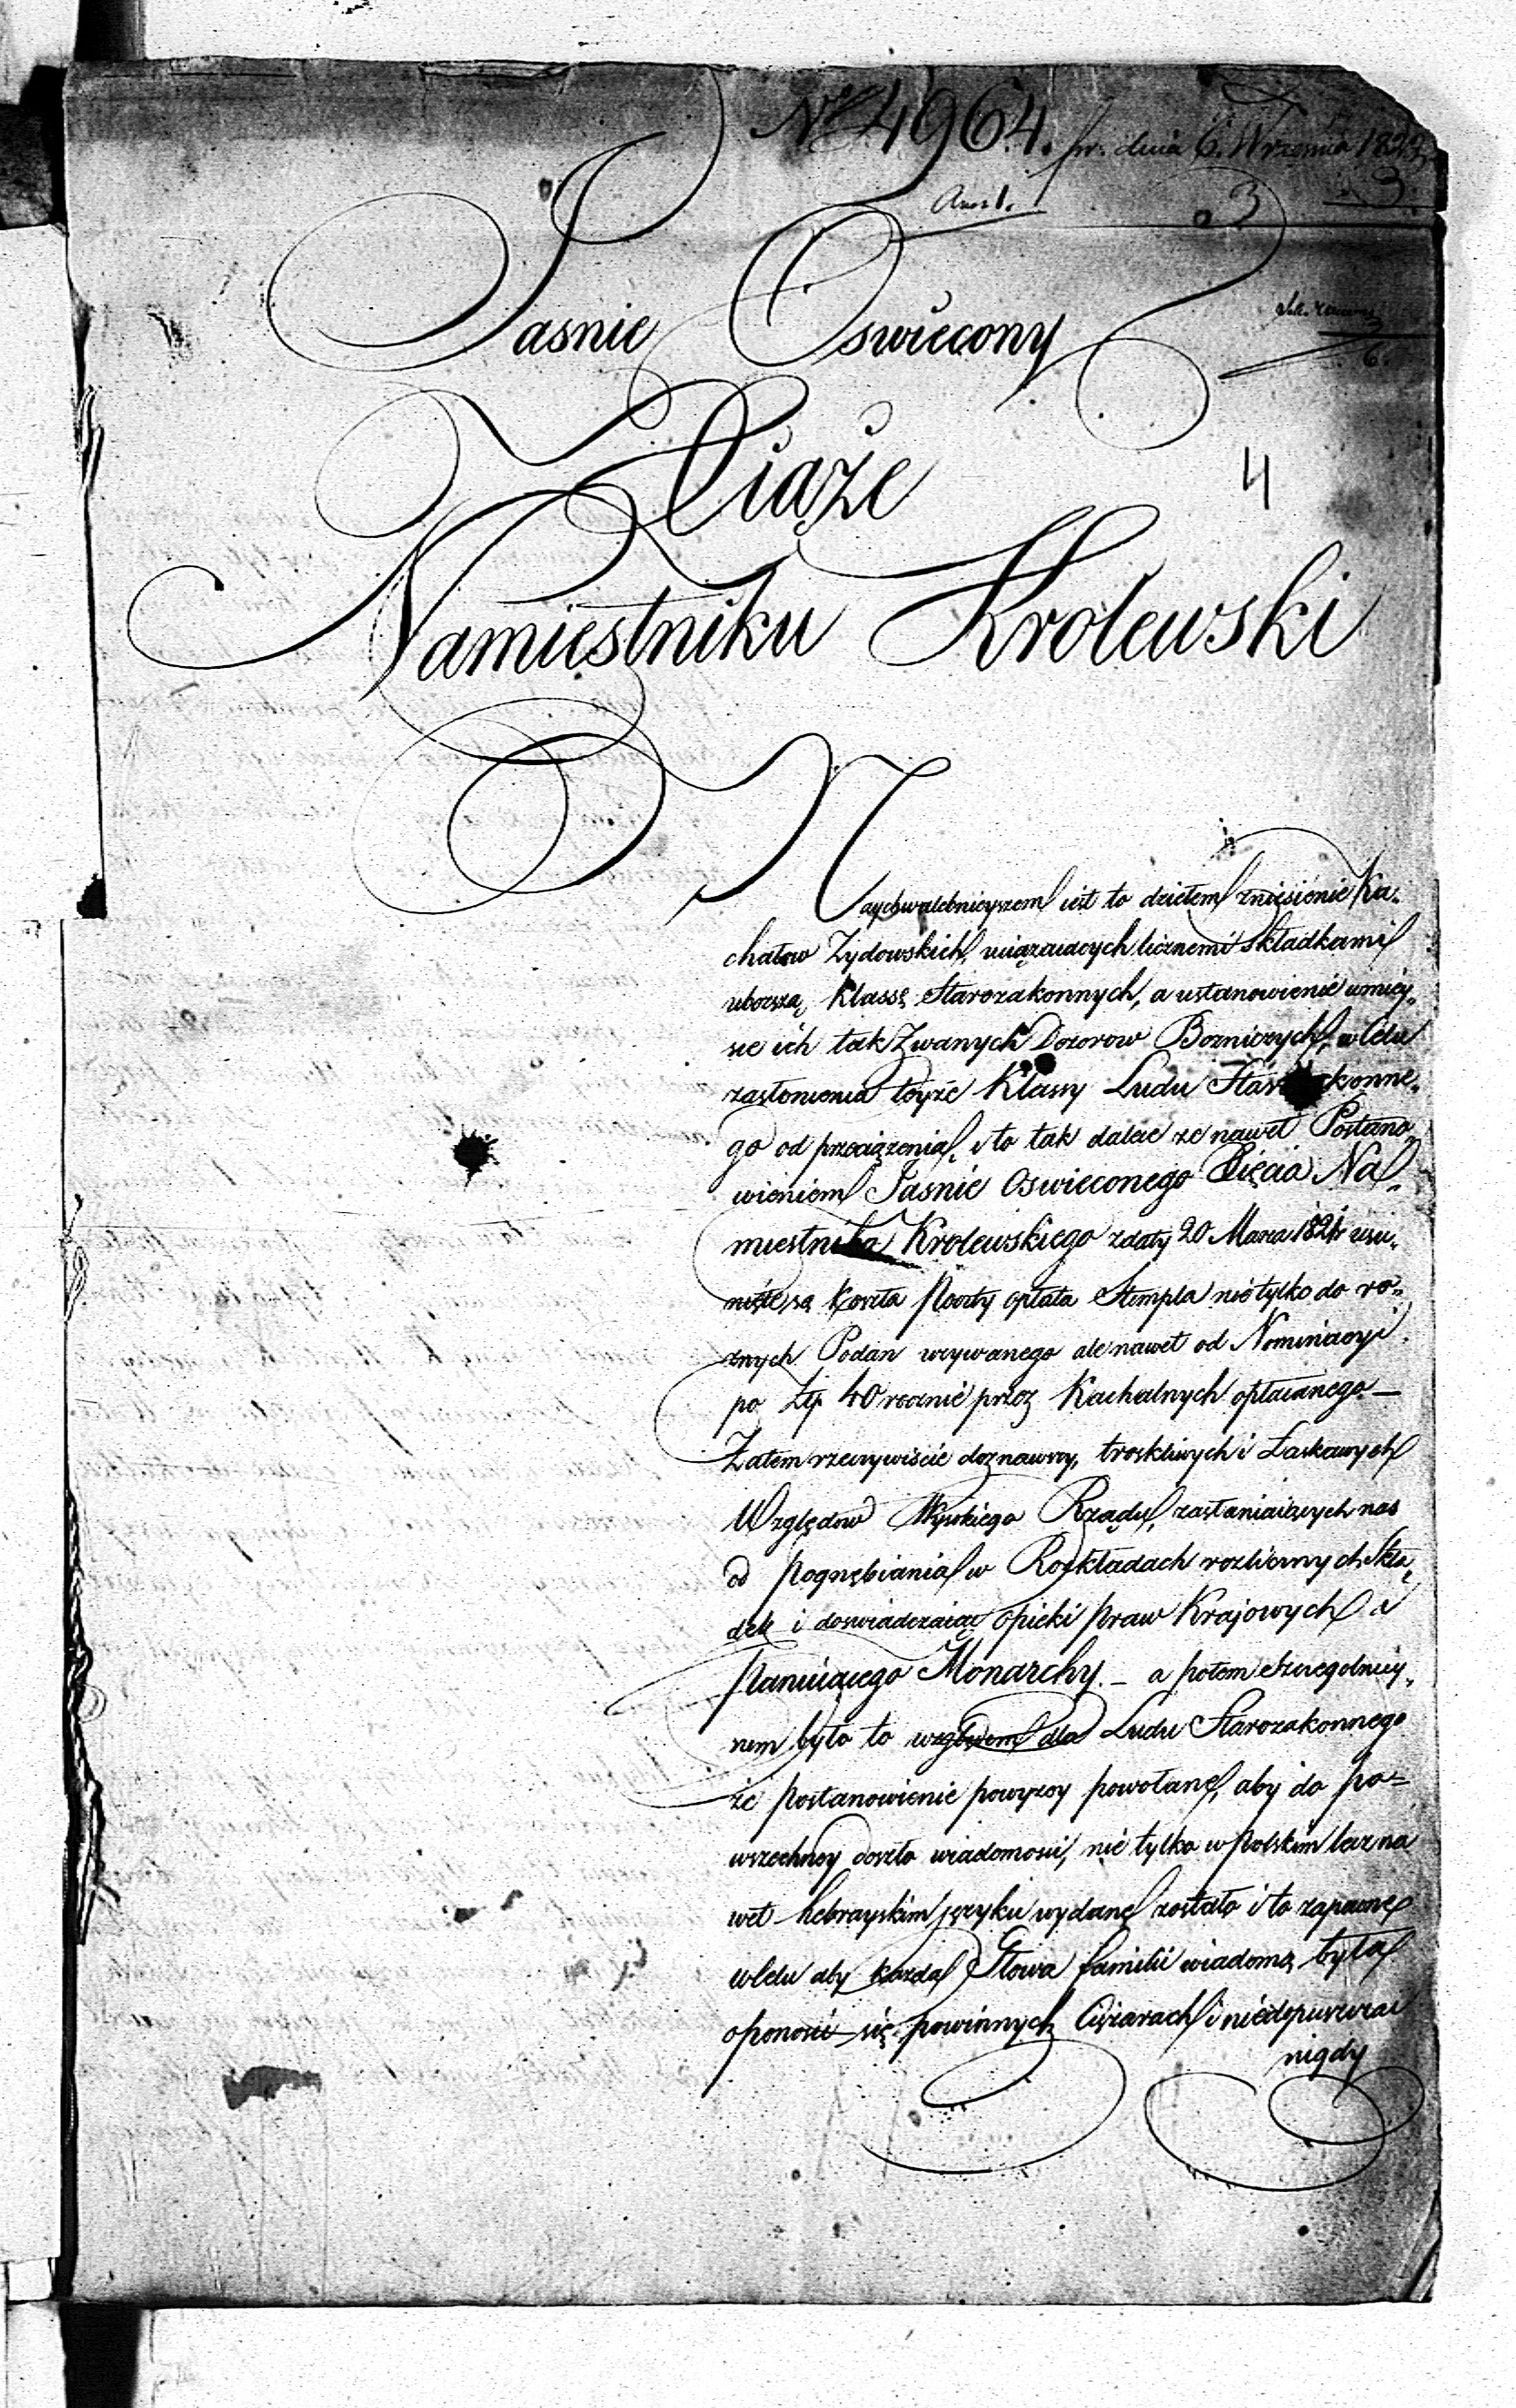 No 4964. pr. dnia 6. Września 1823
3
3
6.
Jasnie Oswiecony
Xiąże
4
Namiestniku Krolewski
Naychwalebnieyszem iest to dziełem zniesienie Ka-
chałow Zydowskich, uciązaiących licznemi Składkami
uboższą Klassę Starozakonnych, a ustanowienie w miey-
sce ich tak Zwanych Dozorow Bozniczych, w Celu
zasłonienia teyże Klassy Ludu Staro konne-
go od przeciążenia, i to tak dalece ze nawet Postano-
wieniem Jasnie Oswieconego Xięcia Na-
miestnika Krolewskiego z daty 20 Marca 1821r usu-
nięte są koszta Poczty opłata Stempla nie tylko do ro-
żnych Podan używanego ale nawet od Nominacyi
po Złp 40 rocznie przez Kachalnych opłacanego —
Zatem rzeczywiście doznawszy, troskliwych i Łaskawych
Względow Wysokiego Rządu, zasłaniaiących nas
od pognębiania w Rozkładach rozlicznych Skła-
dek i doswiadczaiąc opieki Praw Krajowych i
Panuiącego Monarchy. — a potem Szczegolniey-
nem było to względem dla Ludu Starozakonnego
że postanowienie powyzey powołane, aby do po-
wszechney doszło wiadomosci, nie tylko w Polskim lecz na
wet hebrayskim języku wydane zostało i to zapewne
w Celu aby każda Głowa familii wiadomą była
o ponosić się powinnych Ciężarach i niedopuszczać
nigdy